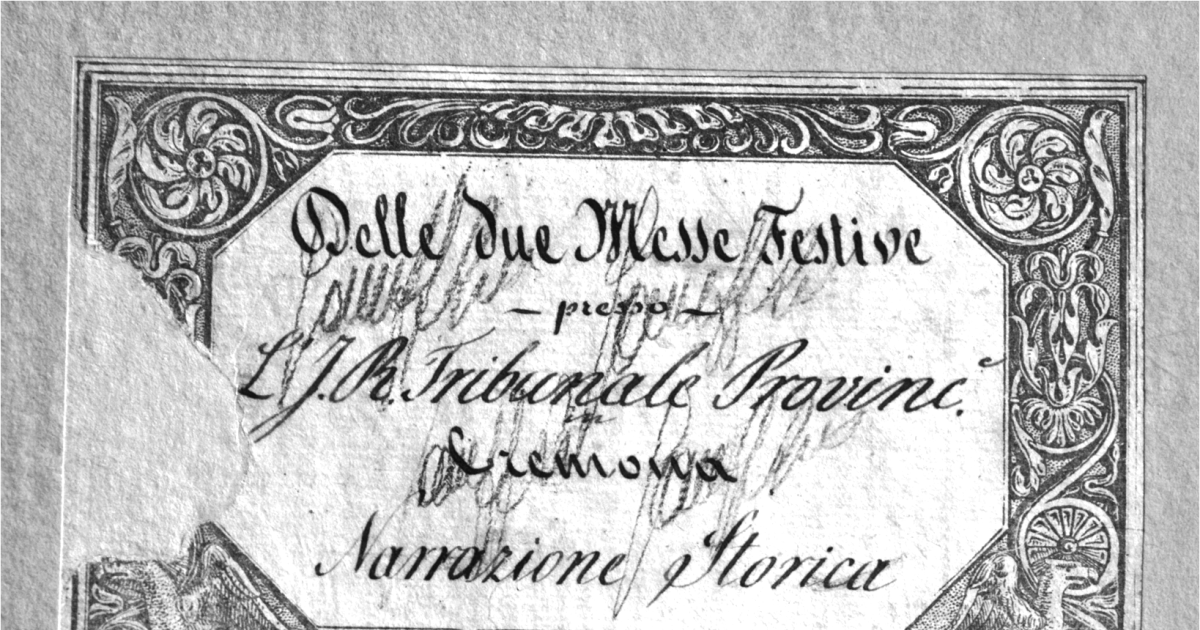 Delle due Messe Festive
— presso —
L'I. R. Tribunale Provinc.e
in
Cremona
Narrazione Storica